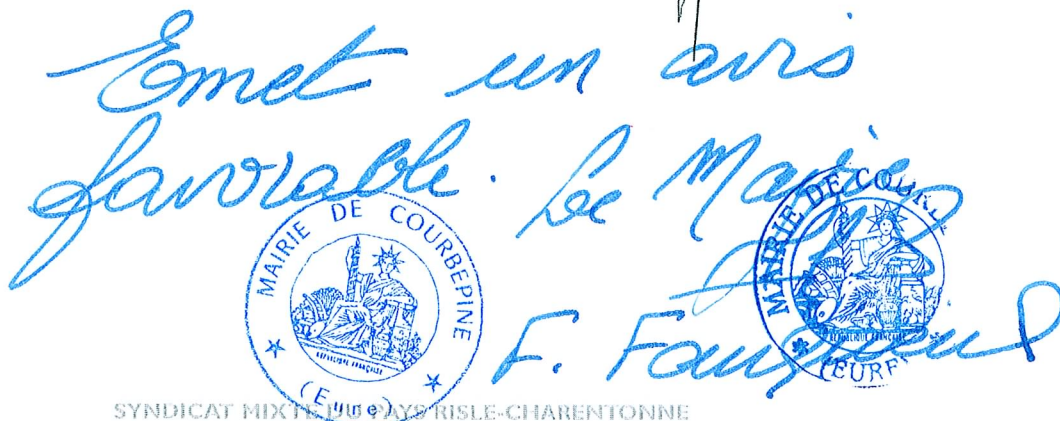 Emet un avis
favorable. Le Maire
MAIRIE DE COURBEPINE
(Eure)
REPUBLIQUE FRANÇAISE
MAIRIE DE COURBE
REPUBLIQUE FRANÇAISE
(EURE)
F.
SYNDICAT MIXTE DU PAYS RISLE-CHARENTONNE